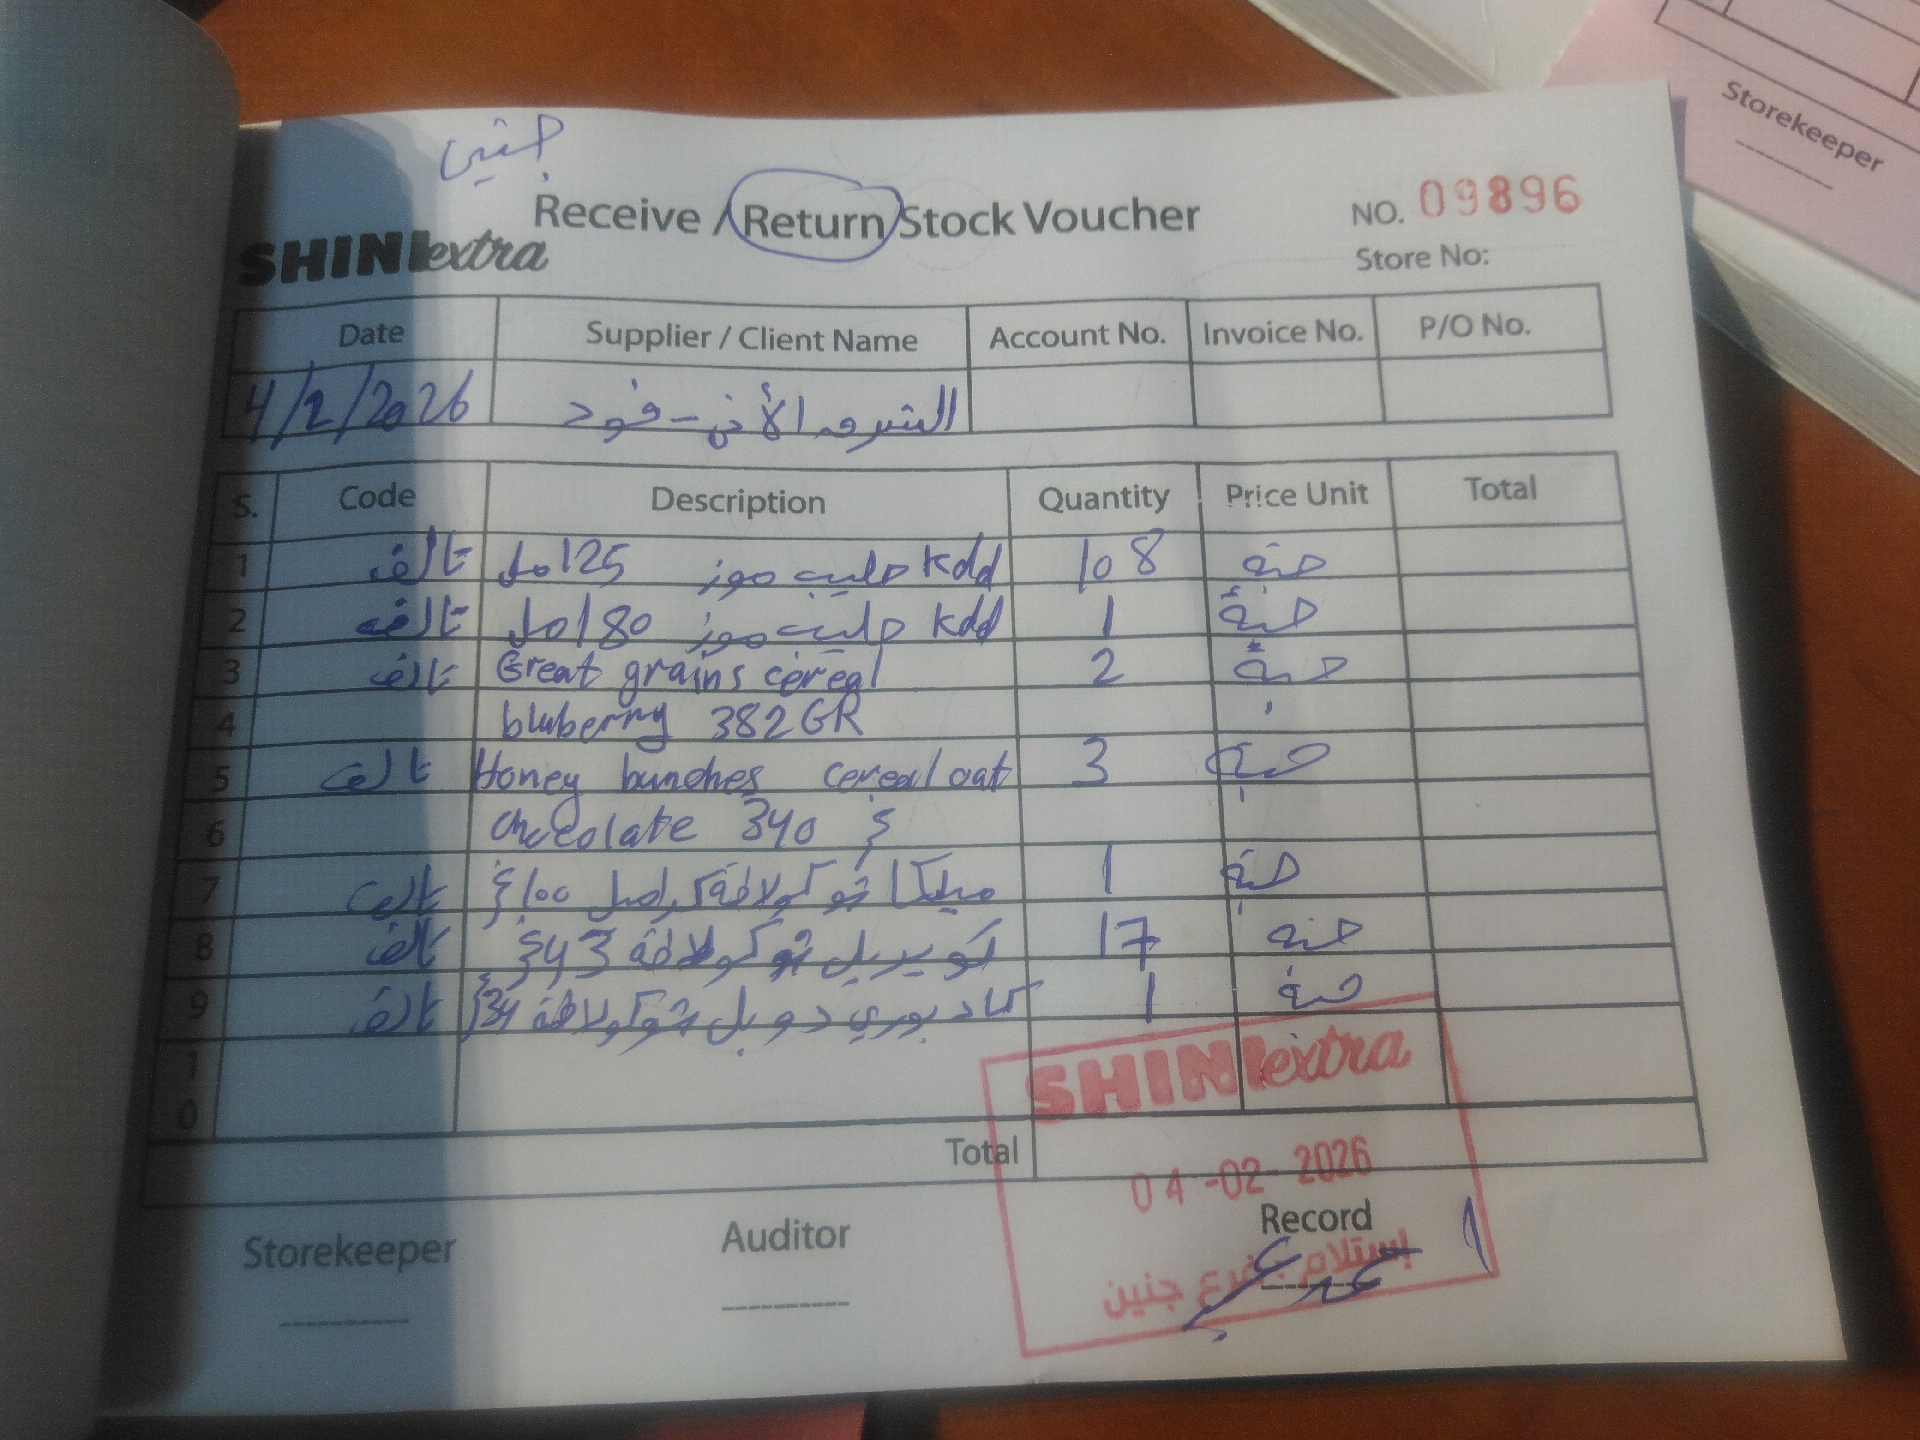 جنين
Receive / Return Stock Voucher
NO. 09896
SHINI extra
Store No:
Date Supplier / Client Name Account No. Invoice No. P/O No.
4/2/2026 الشرق الأدنى - فود
S. Code Description Quantity Price Unit Total
1 تالف Kdd حليب موز 125 مل 108 حبة
2 تالف Kdd حليب موز 180 مل 1 حبة
3 تالف Great grains cereal 2 حبة
4 bluberry 382 GR
5 تالف Honey bunches cereal oat 3 حبة
6 chocolate 340 غ
7 تالف ميلكا شوكولاتة كراميل 100 غ 1 حبة
8 تالف شوكولاتة 43 غ 17 حبة
9 تالف كادبوري دوبل شوكولاتة 34 غ 1 حبة
10
Total
SHINI extra
04-02-2026
إستلام فرع جنين
Storekeeper Auditor Record
Storekeeper